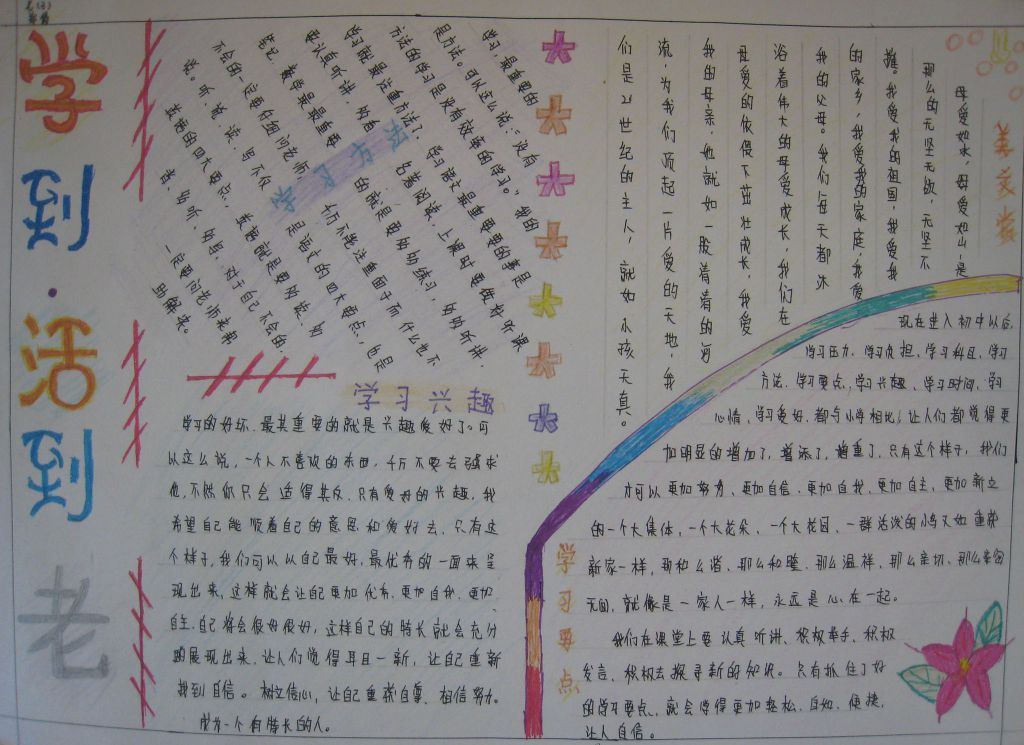 学到·活到老
学习方法
学习最重要的
是方法。可以这么说:“没有
方法的学习是没有效率的学习。”我的
学习就最注重方法了。学习语文最重要的事是
要认真听讲,
笔记,
不会的一定要仔细问老师,千万不能注重面子而什么也不
说。听、说、读、写不仅是语文的四大要点,也是
数学的四大要点。数学就是要
对于自己不会的,
一定要问老师来帮
助解决。
学习兴趣
学习的好坏、最其重要的就是兴趣爱好了。可
以这么说,一个人不喜欢的东西,千万不要去强求
他,不然你只会适得其反。只有爱好的兴趣,我
希望自己能顺着自己的意思和爱好去,只有这
个样子,我们可以从自己最好、最优秀的一面来呈
现出来,这样就会让自己更加优秀、更加自我、更加
自主。自己将会很好很好,这样自己的特长就会充分
的展现出来、让人们觉得耳目一新,让自己重新
找到自信。树立信心,让自己重获自尊、相信努力。
成为一个有特长的人。
美文赏
母爱如水,母爱如山,是
那么的无坚无欲,无坚不
摧。我爱我的祖国,我爱我
的家乡,我爱我的家庭,我爱
我的父母。我们每天都沐
浴着伟大的母爱成长,我们在
母爱的依偎下茁壮成长,我爱
我的母亲,她就如一股清清的河
流,为我们顶起一片爱的天地,我
们是21世纪的主人,就如小孩天真。
学习要点
现在进入初中以后,
学习压力、学习负担、学习科目、学习
方法、学习要点、学习兴趣、学习时间、学习
心情、学习爱好、都与小学相比,让人们都觉得更
加明显的增加了,增添了,增重了,只有这个样子,我们
才可以更加努力、更加自信、更加自我、更加自主、更加新立
的一个大集体,一个大花朵、一个大花园、一群活泼的小鸟又如重获
新家一样,那和么谐、那么和睦、那么温祥,那么亲切、那么亲密
无间,就像是一家人一样,永远是心在一起。
我们在课堂上要认真听讲、积极举手、积极
发言、积极去探寻新的知识。只有抓住了好
的学习要点,就会学得更加轻松、自如、便捷,
让人自信。